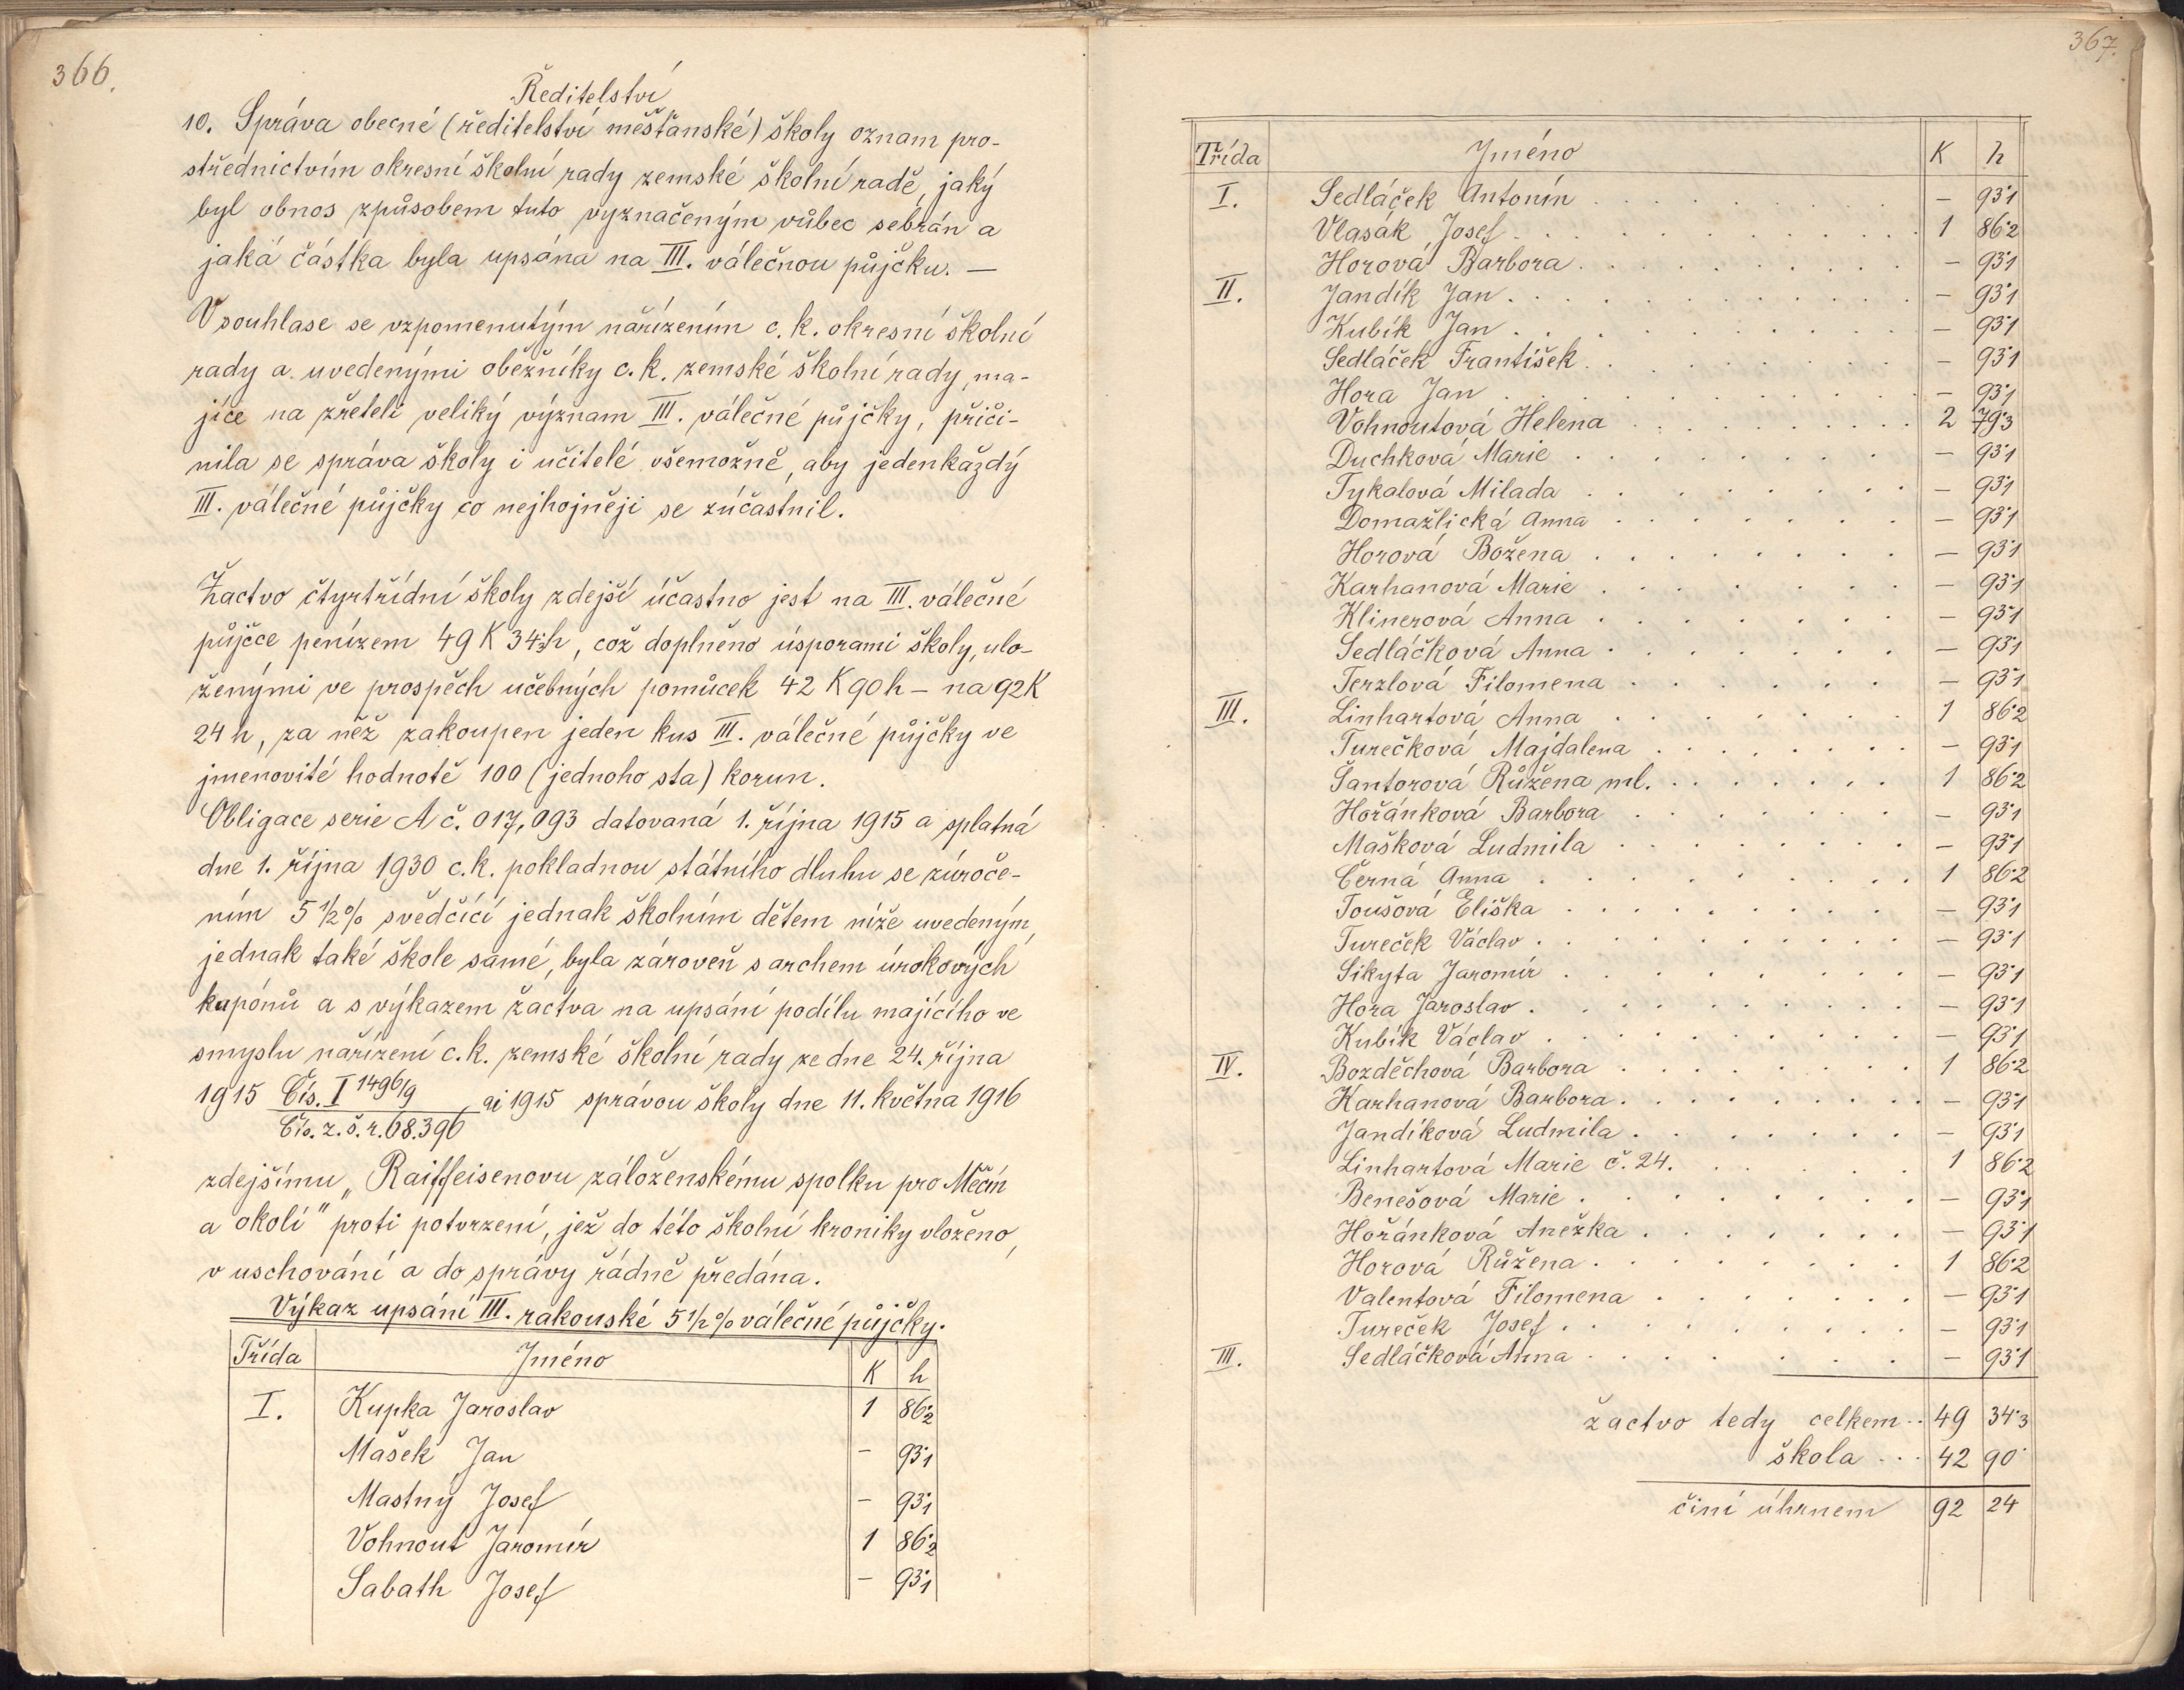 366.
Ředitelství
10. Správa obecné (ředitelství měšťanské) školy oznam pro-
střednictvím okresní školní rady zemské školní radě, jaký
byl obnos způsobem tuto vyznačeným vůbec sebrán a
jaká částka byla upsána na III. válečnou půjčku. —
V souhlase se vzpomenutým nařízením c. k. okresní školní
rady a uvedenými oběžníky c. k. zemské školní rady, ma-
jíce na zřeteli veliký význam III. válečné půjčky, přiči-
nila se správa školy i učitelé všemožně, aby jedenkaždý
III. válečné půjčky co nejhojněji se zúčastnil.
Žactvo čtyrtřídní školy zdejší účastno jest na III. válečné
půjčce penízem 49 K 34·3h, což doplněno úsporami školy, ulo-
ženými ve prospěch učebných pomůcek 42 K 90 h – na 92 K
24 h, za něž zakoupen jeden kus III. válečné půjčky ve
jmenovité hodnotě 100 (jednoho sta) korun.
Obligace serie A č. 017,093 datovaná 1. října 1915 a splatná
dne 1. října 1930 c. k. pokladnou státního dluhu se zúroče-
ním 5 1/2% svědčící jednak školním dětem níže uvedeným,
jednak také škole samé, byla zároveň s archem úrokových
kupónů a s výkazem žactva na upsání podílu majícího ve
smyslu nařízení c. k. zemské školní rady ze dne 24. října
1915 Čís. I 1496/9 ai 1915 správou školy dne 11. května 1916
Čís. z. š. r. 68.396
zdejšímu „Raiffeisenovu záloženskému spolku pro Měčín
a okolí" proti potvrzení, jež do této školní kroniky vloženo,
v uschování a do správy řádně předána.
Výkaz upsání III. rakouské 5 1/2 % válečné půjčky.
Třída Jméno K h
I. Kupka Jaroslav 1 86·2
Mašek Jan – 93·1
Mastný Josef – 93·1
Vohnout Jaromír 1 86·2
Sabath Josef – 93·1
367.
Třída Jméno K h
I. Sedláček Antonín . . . . . . . . . – 93·1
Vlasák Josef . . . . . . . . . 1 86·2
Horová Barbora . . . . . . . . . – 93·1
II. Jandík Jan . . . . . . . . . – 93·1
Kubík Jan . . . . . . . . . – 93·1
Sedláček František . . . . . . . . . – 93·1
Hora Jan . . . . . . . . . – 93·1
Vohnoutová Helena . . . . . . . . . 2 79·3
Duchková Marie . . . . . . . . – 93·1
Tykalová Milada . . . . . . . . – 93·1
Domažlická Anna . . . . . . . – 93·1
Horová Božena . . . . . . . . – 93·1
Karhanová Marie . . . . . . . – 93·1
Klinerová Anna . . . . . . . – 93·1
Sedláčková Anna . . . . . . . – 93·1
Terzlová Filomena . . . . . . – 93·1
III. Linhartová Anna . . . . . . . 1 86·2
Turečková Majdalena . . . . . . . – 93·1
Šantorová Růžena ml. . . . . . . . 1 86·2
Hořánková Barbora . . . . . . . – 93·1
Mašková Ludmila . . . . . . . . – 93·1
Černá Anna . . . . . . . . . 1 86·2
Toušová Eliška . . . . . . . . – 93·1
Tureček Václav . . . . . . . . . – 93·1
Sikyta Jaromír . . . . . . . . – 93·1
Hora Jaroslav . . . . . . . . . – 93·1
Kubík Václav . . . . . . . . . – 93·1
IV. Bozděchová Barbora . . . . . . . . 1 86·2
Karhanová Barbora . . . . . . . . . – 93·1
Jandíková Ludmila . . . . . . . – 93·1
Linhartová Marie č. 24. . . . . . . 1 86·2
Benešová Marie . . . . . . . . – 93·1
Hořánková Anežka . . . . . . . – 93·1
Horová Růžena . . . . . . . . 1 86·2
Valentová Filomena . . . . . . . – 93·1
Tureček Josef . . . . . . . . – 93·1
III. Sedláčková Anna . . . . . . . – 93·1
žactvo tedy celkem .. 49 34·3
škola ... 42 90·
činí úhrnem 92 24